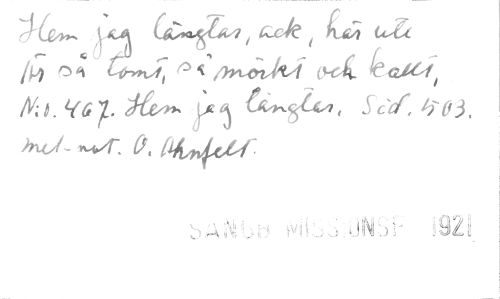 Hem jag längtar, ack, här ute
Är så tomt, så mörkt och kallt,
N:o. 467. Hem jag längtar. Sid. 503.
mel-not. O. Ahnfelt.
SANGB MISSIONSF 1921